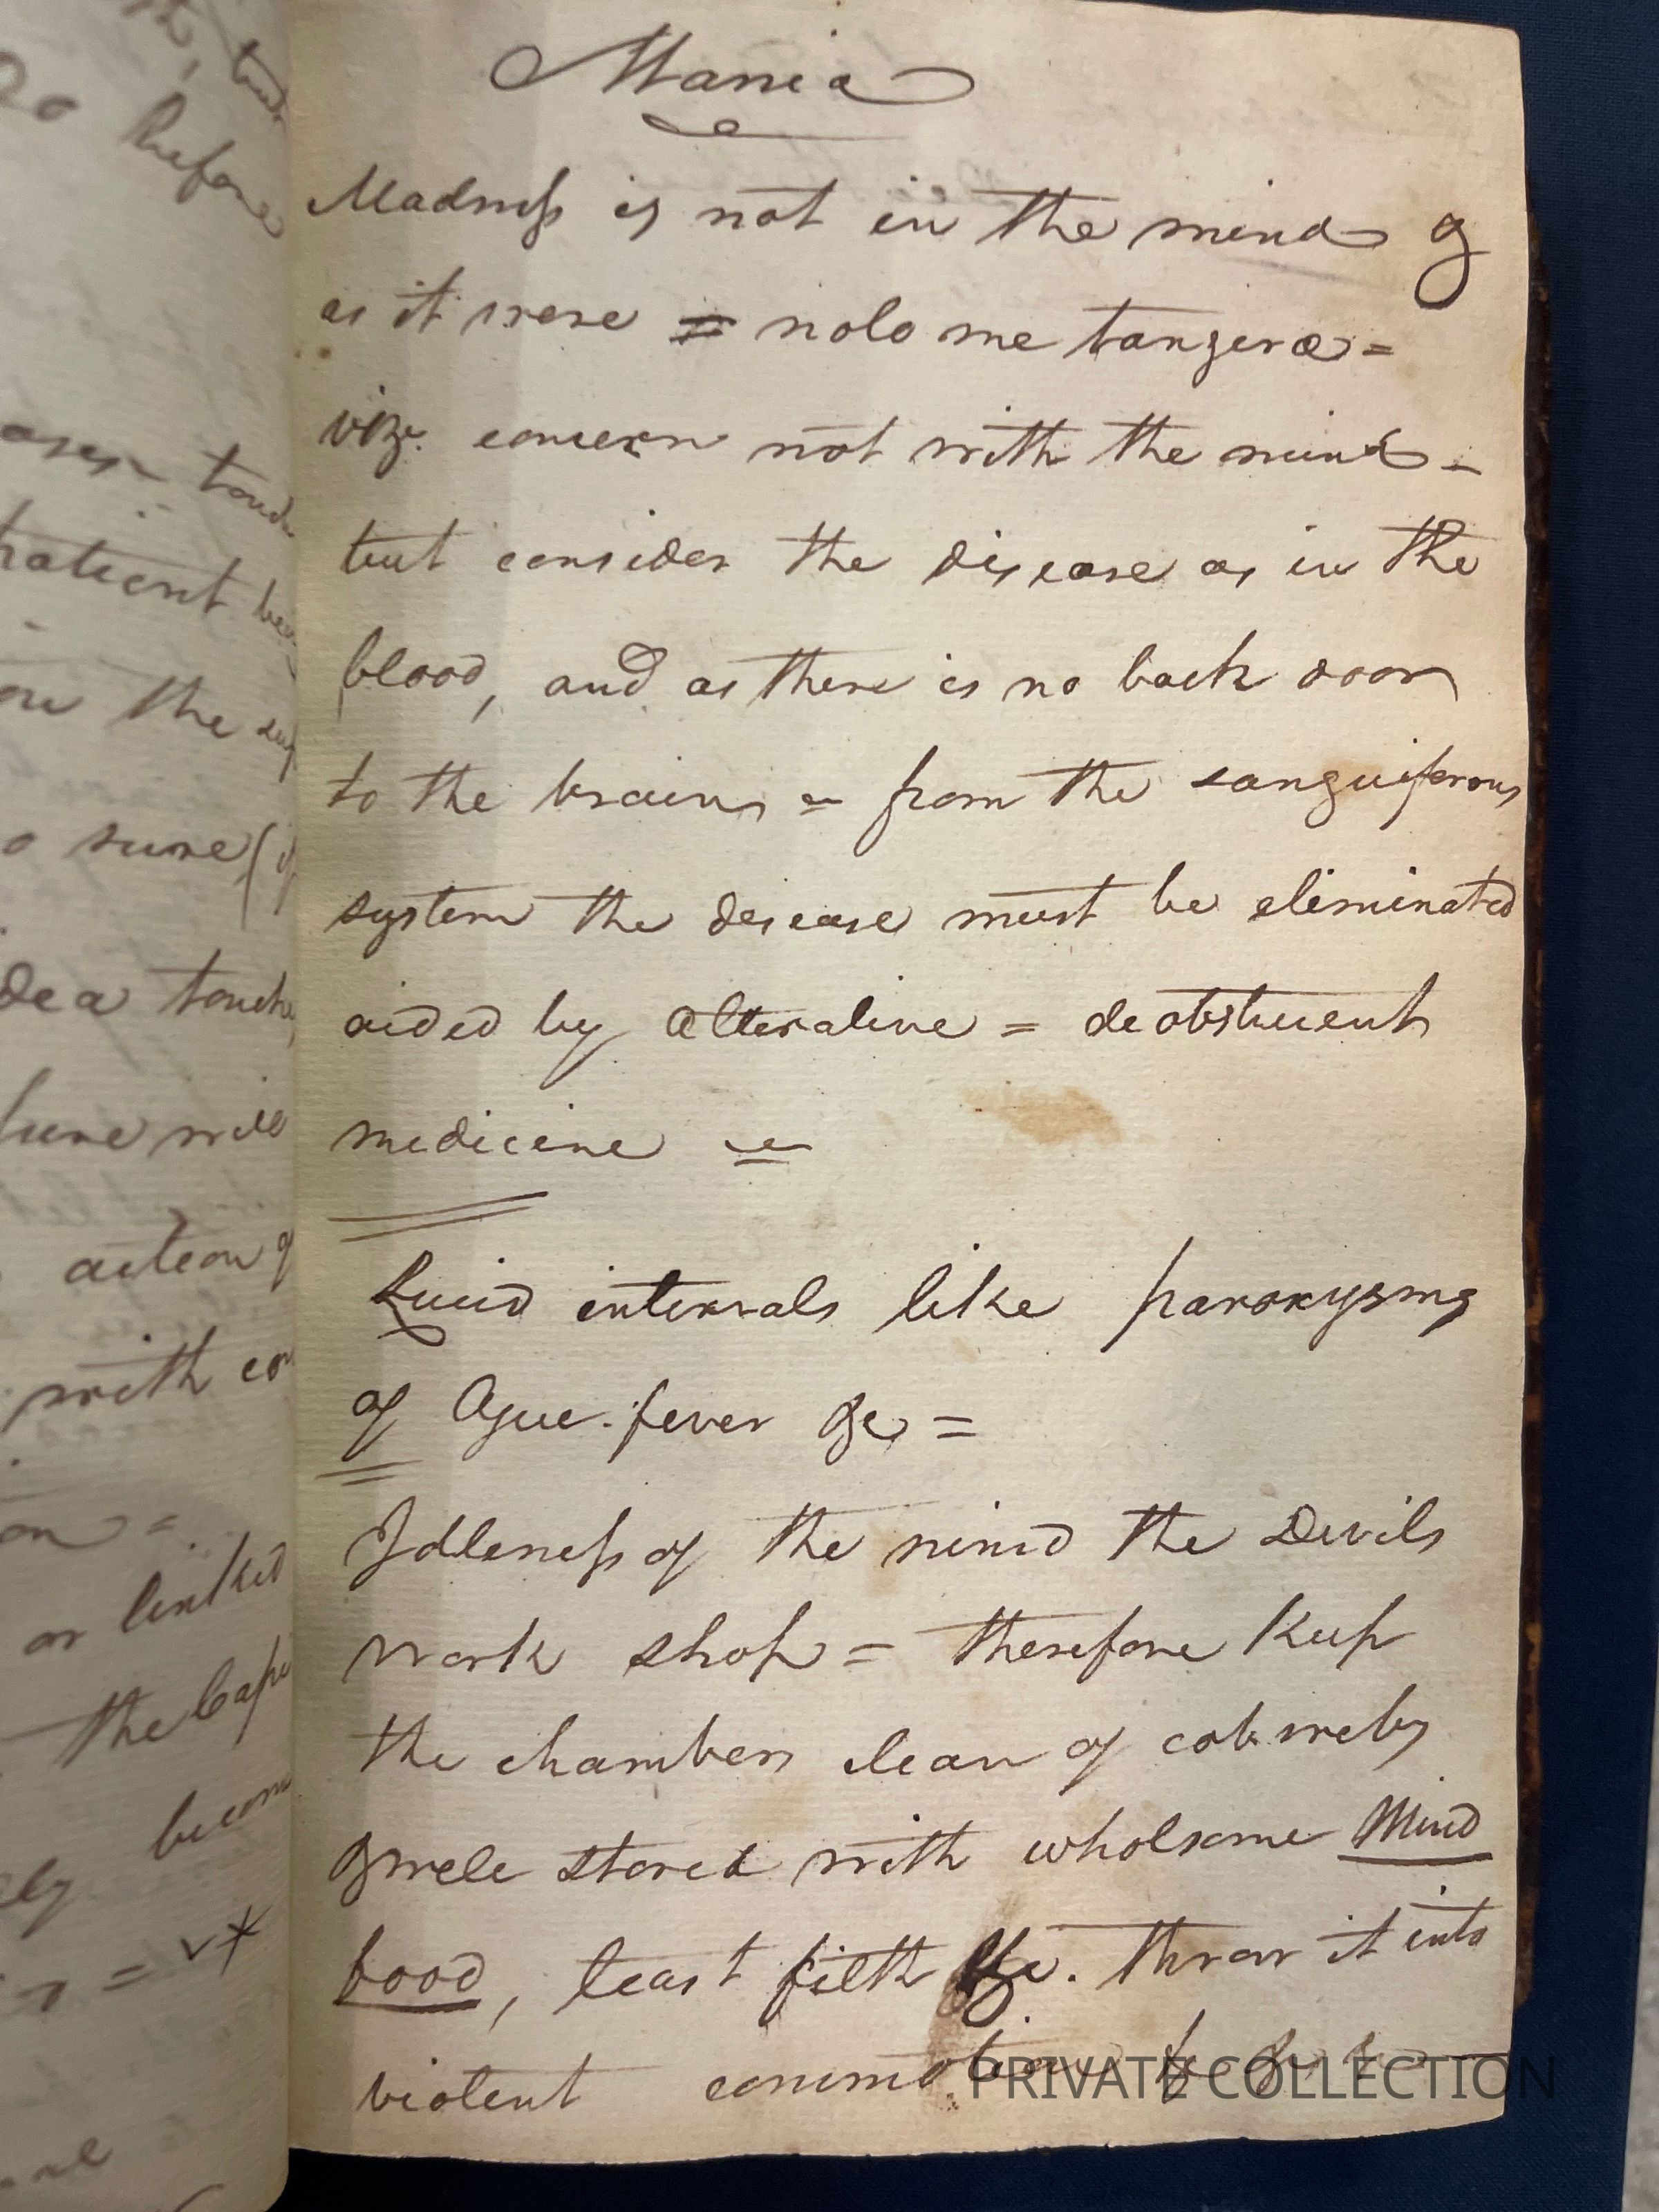 Mania
Madness is not in the mind &
as it were = nolo me tangere =
viz. concern not with the mind -
but consider the disease as in the
blood, and as there is no back door
to the brains = from the sanguiferous
system the disease must be eliminated
aided by alterative = deobstruent
medicine =
Lucid intervals like paroxysms
of Ague. fever &c =
Idleness of the mind the Devils
work shop = therefore keep
the chambers clean of cobwebs
& wele stored with wholsome Mind
food, least filth &c. throw it into
violent commotion &c &c &c
PRIVATE COLLECTION
do before
patient
on the
sure (if
idea
will
action of
with
or linked
the